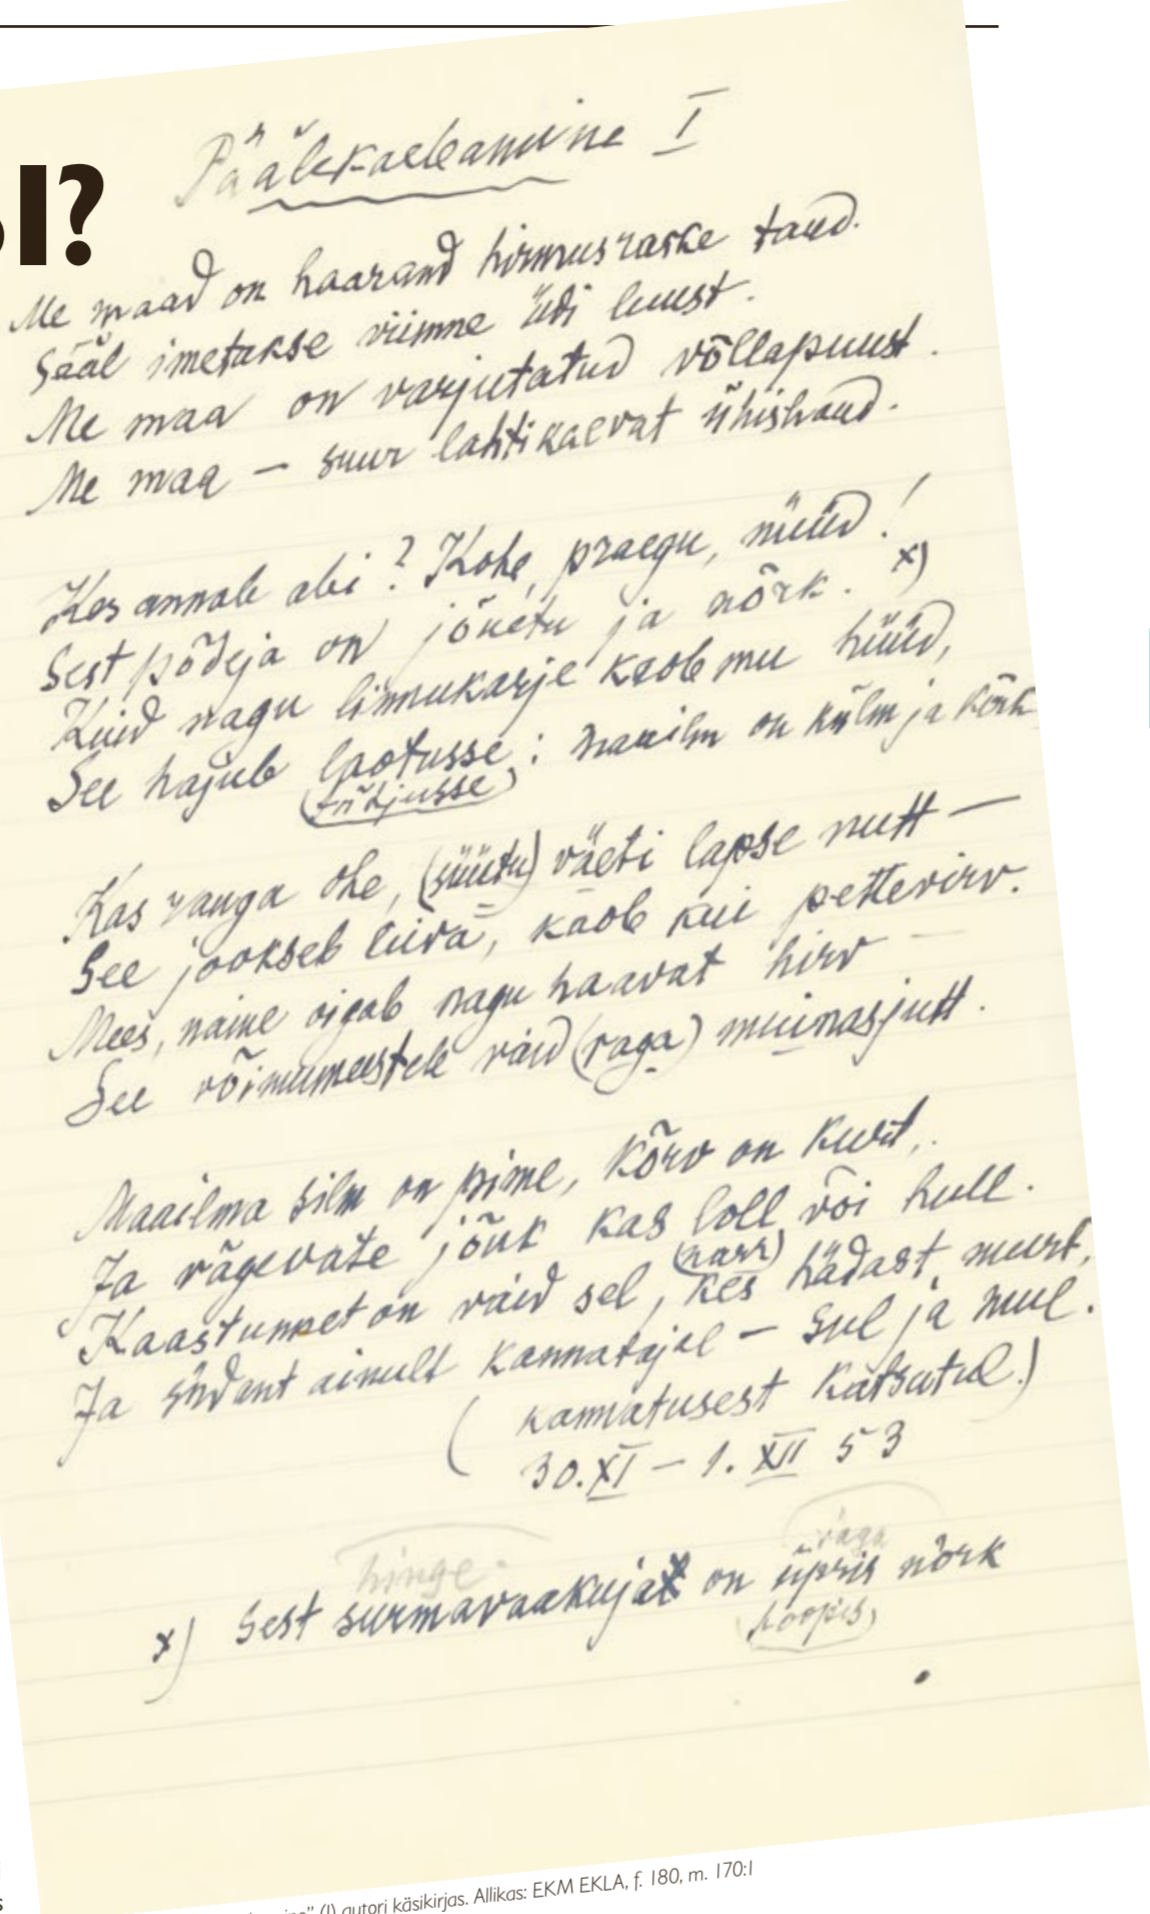 I?
Päälekaebamine I
Me maad on haarand hirmus raske taud.
Sääl imetakse viimne üdi luust.
Me maa on varjutatud võllapuust.
Me maa – suur lahtikaevat ühishaud.
Kes annab abi? Kohe, praegu, nüüd!
Sest põdeja on jõuetu ja nõrk. x)
Kuid nagu linnukarje kaob mu hüüd,
See hajub laotusse: maailm on külm ja kõrk
(tühjusse)
Kas rauga ohe, (süütu) väeti lapse nutt –
See jookseb liiva, kaob kui pettevirv.
Mees, naine oigab nagu haavat hirv –
See võimumeestele vaid (vaga) muinasjutt.
Maailma silm on pime, kõrv on kurt,
Ja vägevate jõuk kas loll või hull.
(narr)
Kaastunnet on vaid sel, kes hädast murt,
Ja südant ainult kannatajal – sul ja mul.
( kannatusest katsutul.)
30.XI – 1. XII 53
hinge-
väga
x) Sest surmavaakuja on üpris nõrk
(hoopis)
(I) autori käsikirjas. Allikas: EKM EKLA, f. 180, m. 170:1
s